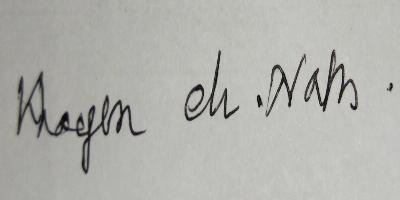 Khagen ch. Nath.